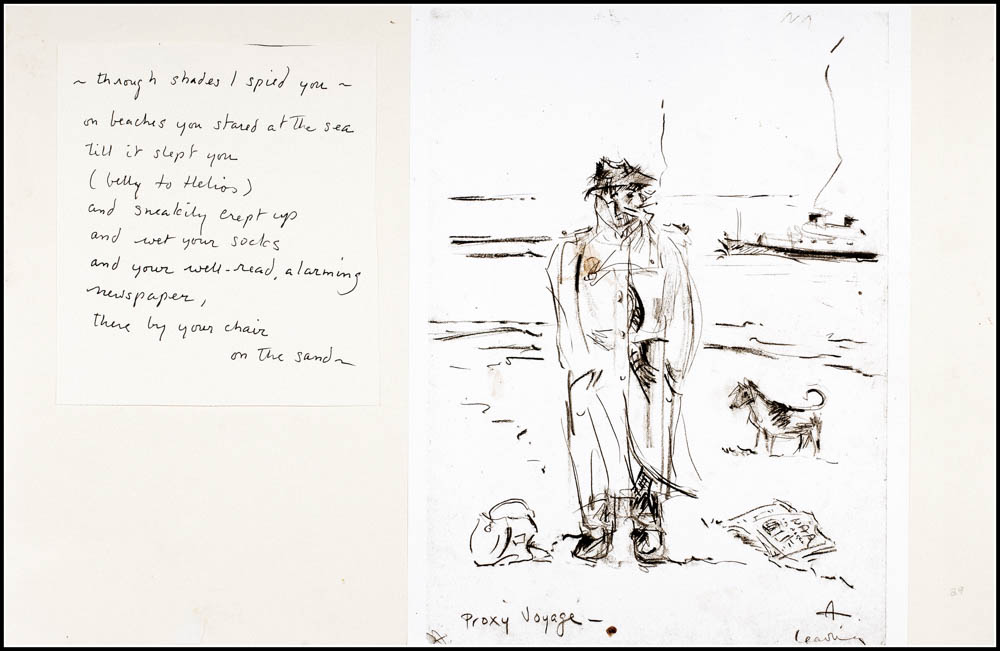 ~ through shades I spied you ~
on beaches you stared at the sea
till it slept you
(belly to Helios)
and sneakily crept up
and wet your socks
and your well-read, alarming
newspaper,
there by your chair
on the sand~
Proxy Voyage —
A
leaving
29